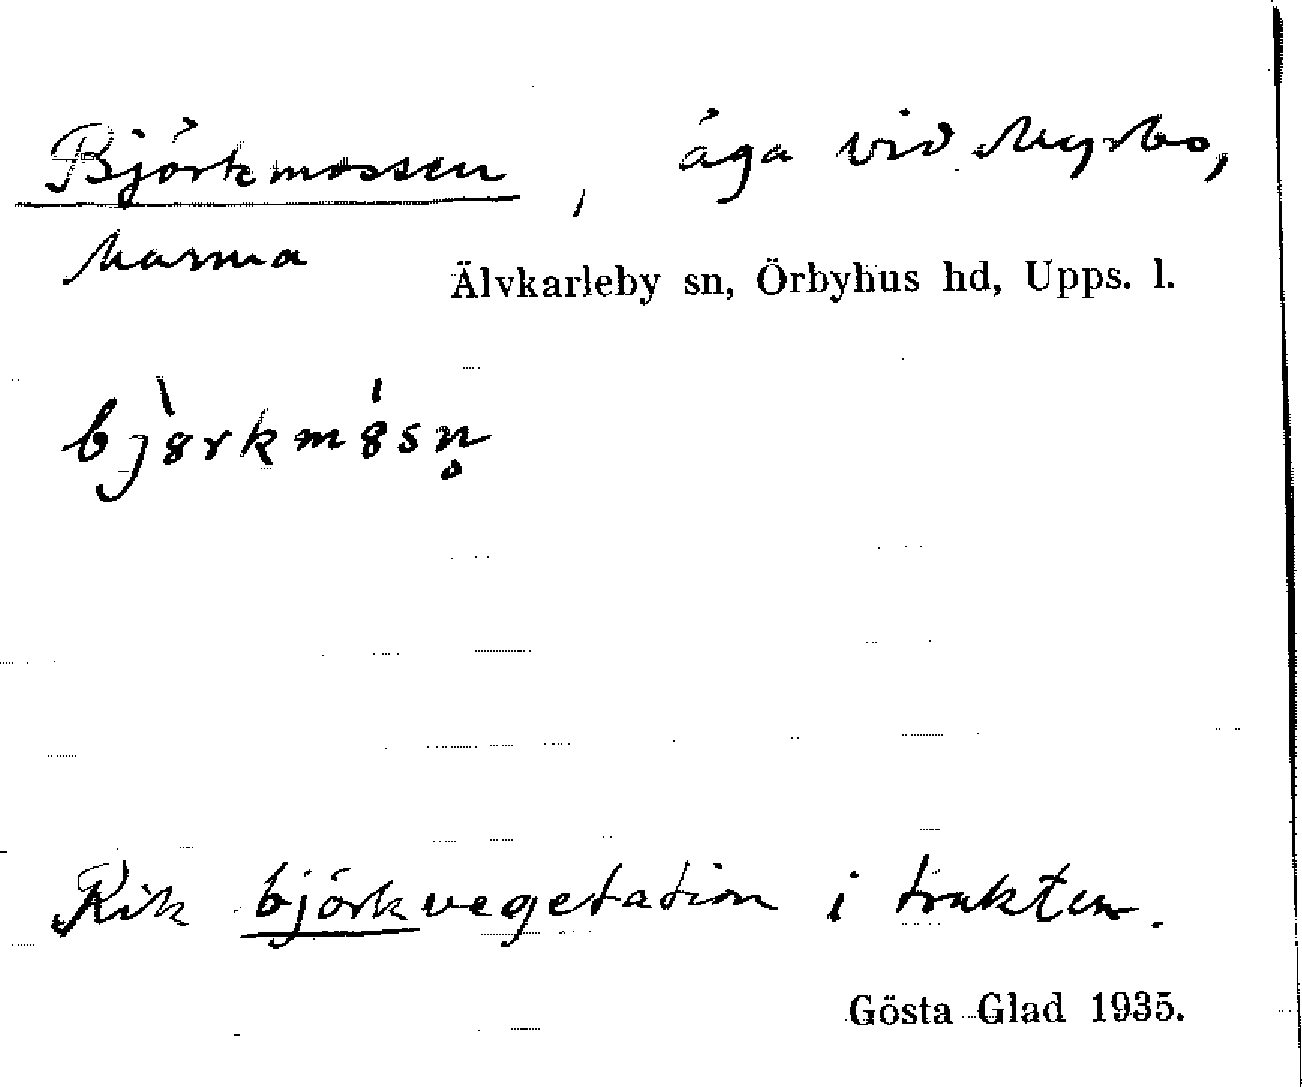 Björkmossen, äga vid Myrbo,
Marma
Älvkarleby sn, Örbyhus hd, Upps. l.
bjòrkmósn̥
Rik björkvegetation i trakten.
Gösta Glad 1935.